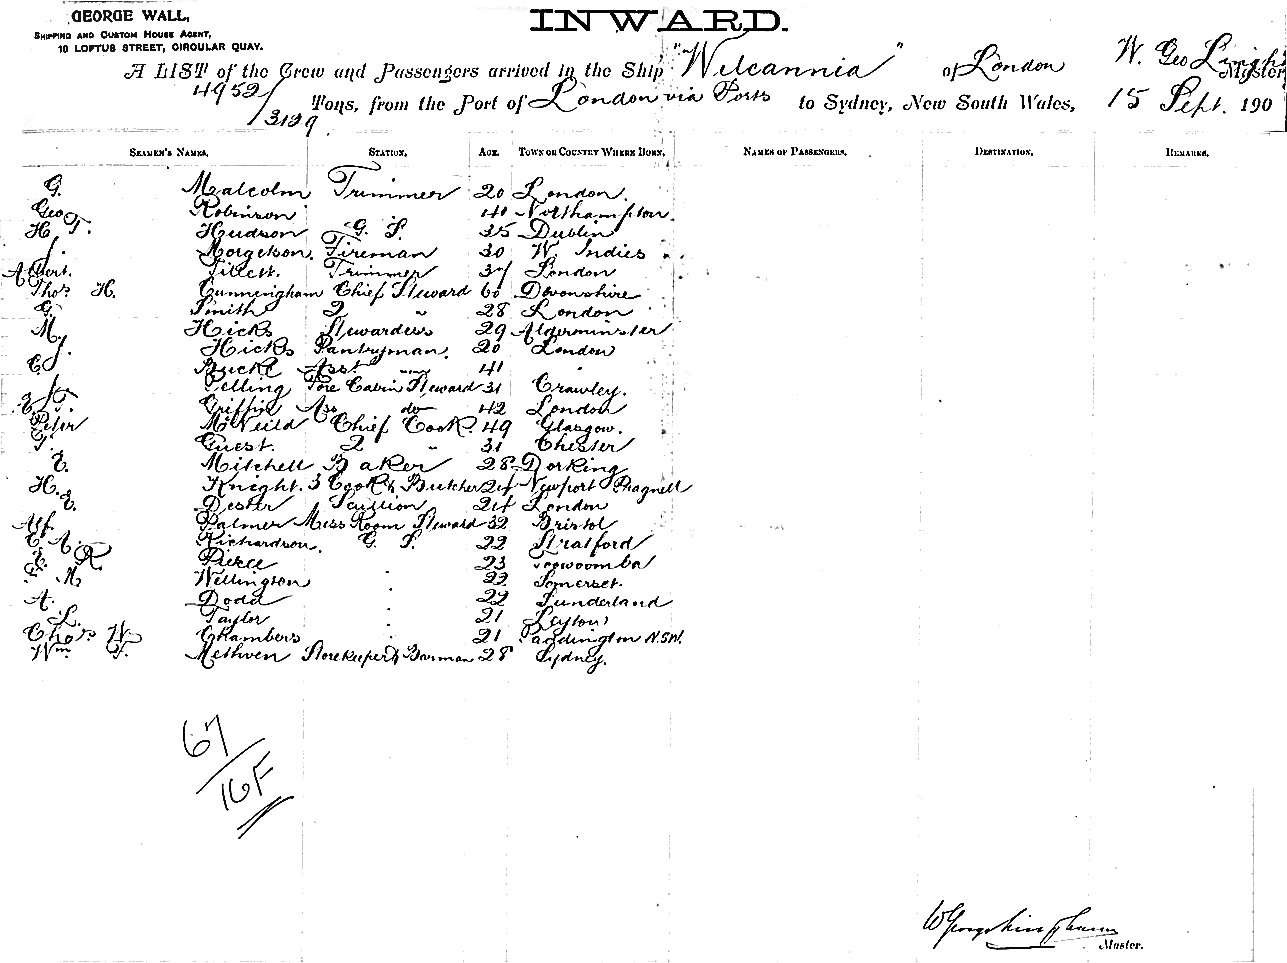 GEORGE WALL,
SHIPPING AND CUSTOM HOUSE AGENT,
10 LOFTUS STREET, CIRCULAR QUAY.
INWARD.
A LIST of the Crew and Passengers arrived in the Ship "Wilcannia" of London W. Geo Master
4952/3129 Tons, from the Port of London via Ports to Sydney, New South Wales, 15 Sept. 190
SEAMEN'S NAMES. STATION. AGE. TOWN OR COUNTRY WHERE BORN. NAMES OF PASSENGERS. DESTINATION. REMARKS.
G. Malcolm Trimmer 20 London.
Geo Robinson 41 Northampton.
H. T. Hudson G. S. 35 Dublin
J. Morgetson. Fireman 30 W. Indies
Albert. Tillett. Trimmer 37 London
Thos H. Cunningham Chief Steward 60 Devonshire
G. Smith 2 " 28 London
M. Hicks Stewardess 29 Alderminster
J. Hicks Pantryman. 20 London
C. Buckl Asst " 41 "
Pelling Fore Cabin Steward 31 Crawley.
Griffin Ass do 42 London
Peter McNeild Chief Cook. 49 Glasgow.
T. Guest. 2 " 31 Chester
E. Mitchell Baker 28 Dorking
H. Knight. 3 Cook & Butcher 24 Newport Pagnell
E. Dester Scullion 24 London
Alf. Palmer Mess Room Steward 32 Bristol
C. A. Richardson. G. S. 22 Stratford
E. R. Pierce " 23 Toowoomba
F. M. Wellington " 22 Somerset.
A. Dodd " 22 Sunderland
L. Taylor " 21 Leyton
Chas W. Chambers " 21 Paddington N.S.W.
Wm. Y. Methven Storekeeper & Barman 28 Sydney.
67/16F
Master.